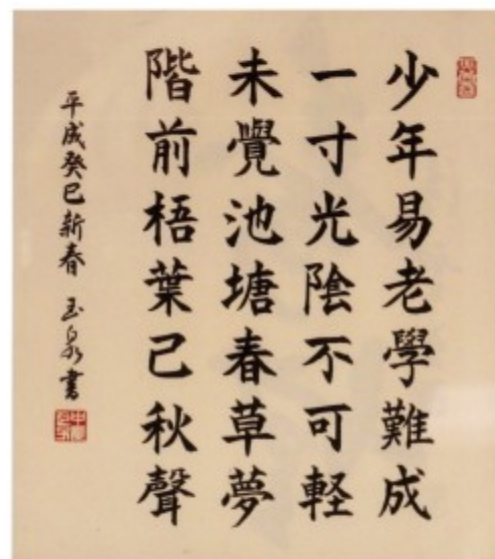 少年易老學難成
一寸光陰不可軽
未覺池塘春草夢
階前梧葉已秋聲
平成癸巳新春 玉泉書